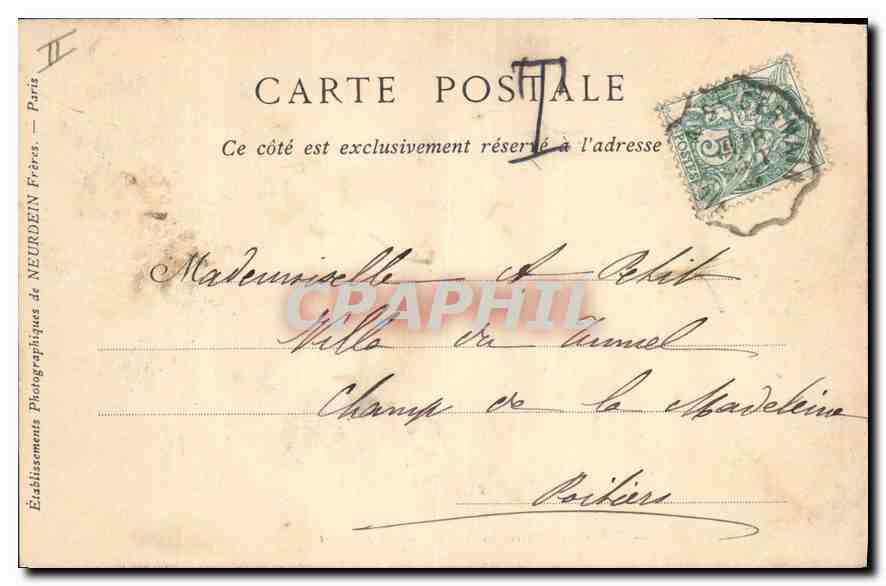 II
CARTE POSTALE
T
Ce côté est exclusivement réservé à l'adresse
5
POSTES
Mademoiselle A Petit
CPAPHIL
Villa du Tunnel
Champ de la Madeleine
Poitiers
Établissements Photographiques de NEURDEIN Frères. — Paris